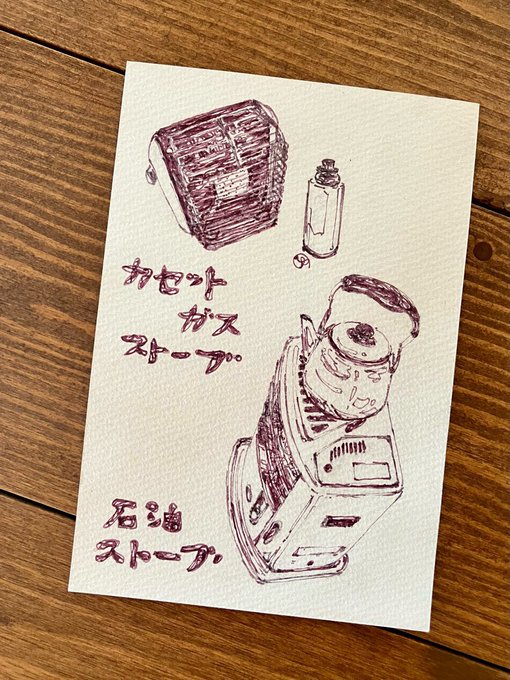 カセット
ガス
ストーブ.
石油
ストーブ.